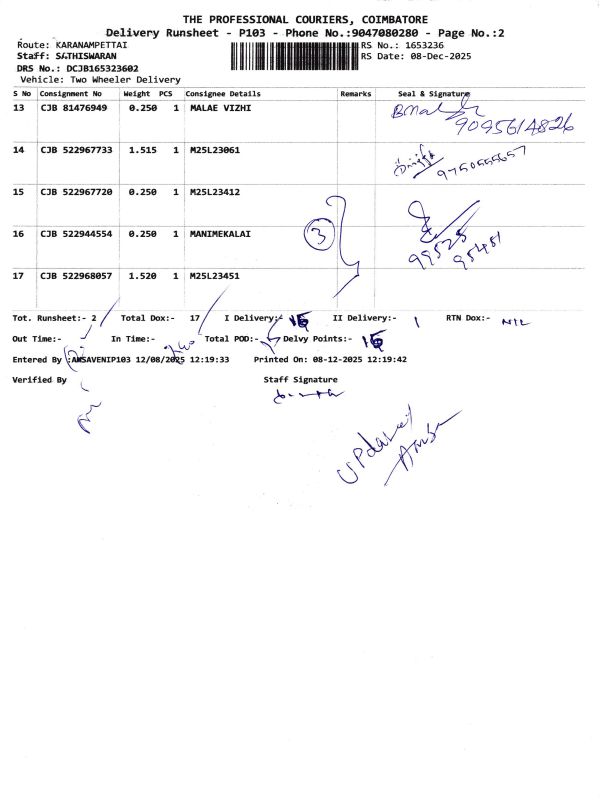 THE PROFESSIONAL COURIERS, COIMBATORE
Delivery Runsheet - P103 - Phone No.:9047080280 - Page No.:2
Route: KARANAMPETTAI RS No.: 1653236
Staff: SATHISWARAN RS Date: 08-Dec-2025
DRS No.: DCJB165323602
Vehicle: Two Wheeler Delivery
S No Consignment No Weight PCS Consignee Details Remarks Seal & Signature
13 CJB 81476949 0.250 1 MALAE VIZHI
9095614826
14 CJB 522967733 1.515 1 M25L23061
9750555657
15 CJB 522967720 0.250 1 M25L23412
16 CJB 522944554 0.250 1 MANIMEKALAI 3
99525
95451
17 CJB 522968057 1.520 1 M25L23451
Tot. Runsheet:- 2 Total Dox:- 17 I Delivery:- 16 II Delivery:- 1 RTN Dox:- NIL
Out Time:- In Time:- Total POD:- Delvy Points:- 16
Entered By :AMSAVENIP103 12/08/2025 12:19:33 Printed On: 08-12-2025 12:19:42
Verified By Staff Signature
Updated